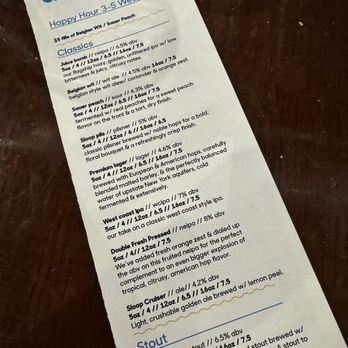 Happy Hour 3-5 Wee
$5 fills of Belgian Wit / Sauer Peach
Classics
Juice bomb // neipa // 6.5% abv
5oz / 4 // 12oz / 6.5 // 16oz / 7.5
our flagship hazy, golden, unfiltered ipa w/ low
bitterness & juicy, citrusy notes.
Belgian wit // wit ale // 4.5% abv 16oz / 7.5
belgian style wit alew/ coriander & orange zest.
Sauer peach // sour // 4.3% abv
5oz / 4 // 12oz / 6.5 // 16oz / 7.5
fermented w/ real peaches for a sweet peach
flavor on the front & a tart, dry finish.
Sloop pils // pilsner // 5% abv
5oz / 4 // 12oz / 6 // 16oz / 6.5
classic pilsner brewed w/ noble hops for a bold,
floral bouquet & a refreshingly crisp finish.
Premium lager // lager // 4.6% abv
5oz / 4 // 12oz / 6.5 // 16oz / 7.5
brewed with Euopean & American hops, carefully
blended malted barley, & the perfectly balanced
water of upstate New York aquifers, cold
fermented & extensively.
West coast ipa // wcipa // 7% abv
5oz / 4 // 12oz / 6.5 // 16oz / 7.5
our take on a classic west coast style ipa.
Double Fresh Pressed // neipa // 8% abv
5oz / 4// 12oz / 7.5
We've added fresh orange zest & dialed up
the abv on this fruited neipa for the perfect
complement to an even bigger explosion of
tropical, citrusy, american hop flavor.
Sloop Cruiser // ale// 4.2% abv
5oz / 4 // 12oz / 6.5 // 16oz / 7.5
Light, crushable golden ale brewed w/ lemon peel.
Stout
stout // 6.5% abv
16oz / 7.5
stout brewed w/
A stout to